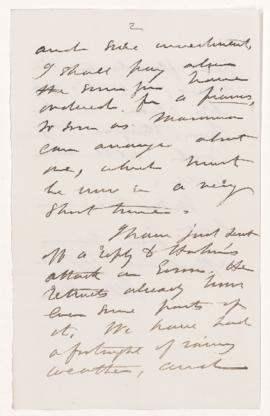 2
and sure investment,
I shall pay also
the sum you have
ordered for a piano,
so soon as Mamma
can arrange about
one, which must
be now in a very
short time.
I have just sent
off a reply to
attack on He
retracts already
even some parts of
it. We have had
a fortnight of rainy
weather, and